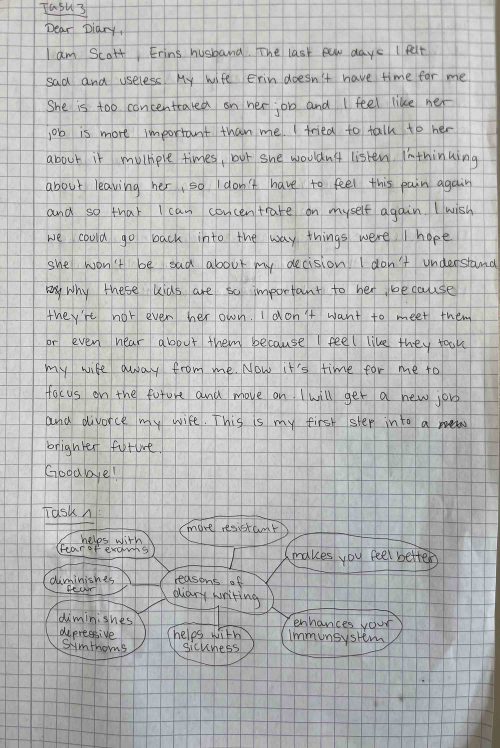 Task 3
Dear Diary,
I am Scott, Erins husband. The last few days I felt
sad and useless. My wife Erin doesn't have time for me
She is too concentrated on her job and I feel like her
job is more important than me. I tried to talk to her
about it multiple times, but she wouldn't listen. I'm thinking
about leaving her, so I don't have to feel this pain again
and so that I can concentrate on myself again. I wish
we could go back into the way things were. I hope
she won't be sad about my decision. I don't understand
why these kids are so important to her, because
they're not even her own. I don't want to meet them
or even hear about them because I feel like they took
my wife away from me. Now it's time for me to
focus on the future and move on. I will get a new job
and divorce my wife. This is my first step into a new
brighter future.
Goodbye!
Task 1:
helps with
fear of exams
more resistant
makes you feel better
diminishes
fear
reasons of
diary writing
diminishes
depressive
Symthoms
helps with
sickness
enhances your
Immunsystem